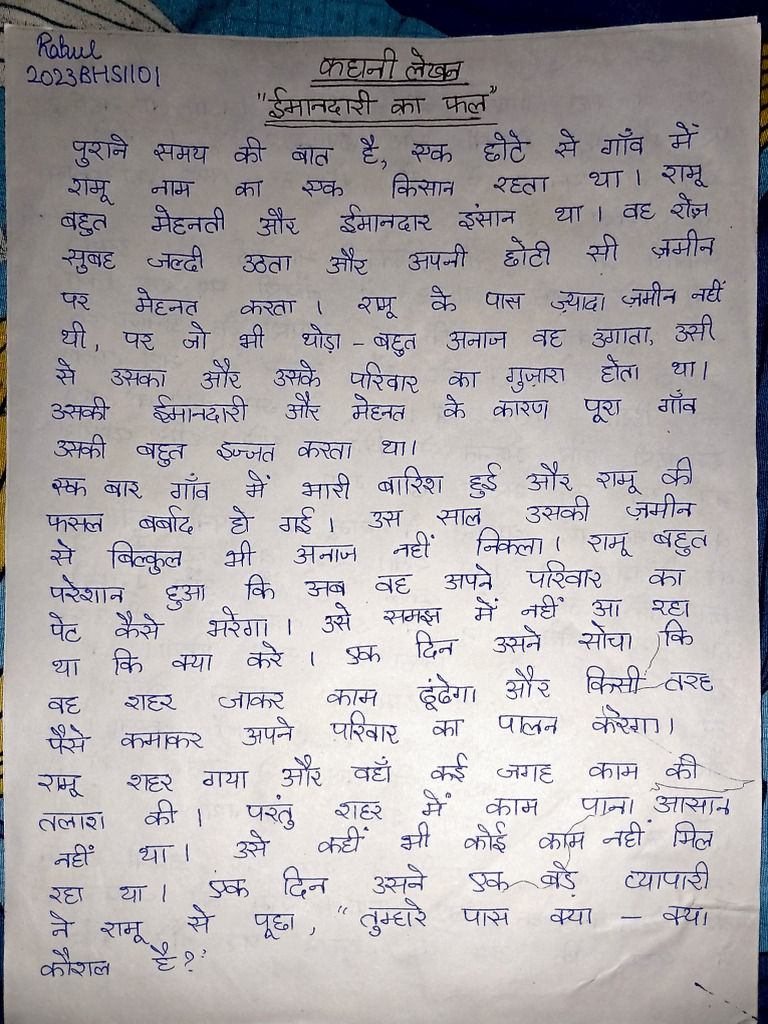 Rahul
2023BHS1101
कहानी लेखन
"ईमानदारी का फल"
पुराने समय की बात है, एक छोटे से गाँव में
रामू नाम का एक किसान रहता था। रामू
बहुत मेहनती और ईमानदार इंसान था। वह रोज़
सुबह जल्दी उठता और अपनी छोटी सी ज़मीन
पर मेहनत करता। रामू के पास ज़्यादा ज़मीन नहीं
थी, पर जो भी थोड़ा - बहुत अनाज वह उगाता, उसी
से उसका और उसके परिवार का गुज़ारा होता था।
उसकी ईमानदारी और मेहनत के कारण पूरा गाँव
उसकी बहुत इज्जत करता था।
एक बार गाँव में भारी बारिश हुई और रामू की
फसल बर्बाद हो गई। उस साल उसकी ज़मीन
से बिल्कुल भी अनाज नहीं निकला। रामू बहुत
परेशान हुआ कि अब वह अपने परिवार का
पेट कैसे भरेगा। उसे समझ में नहीं आ रहा
था कि क्या करे। एक दिन उसने सोचा कि
वह शहर जाकर काम ढूंढेगा और किसी तरह
पैसे कमाकर अपने परिवार का पालन करेगा।
रामू शहर गया और वहाँ कई जगह काम की
तलाश की। परंतु शहर में काम पाना आसान
नहीं था। उसे कहीं भी कोई काम नहीं मिल
रहा था। एक दिन उसने एक बड़े व्यापारी
ने रामू से पूछा, "तुम्हारे पास क्या - क्या
कौशल है?"